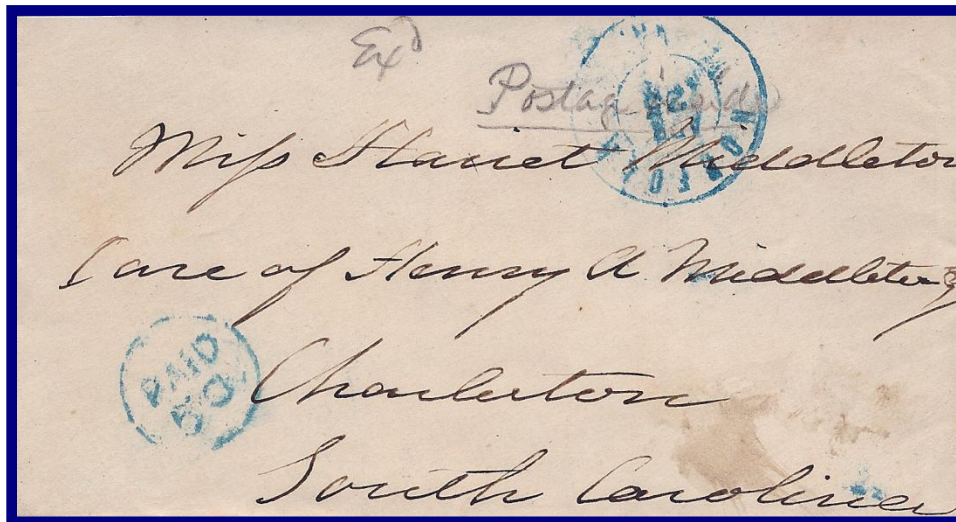 Exd
Postage paid
Miss Harriet Middleton
Care of Henry A Middleton
PAID
Charleston
South Carolina
NORFOLK